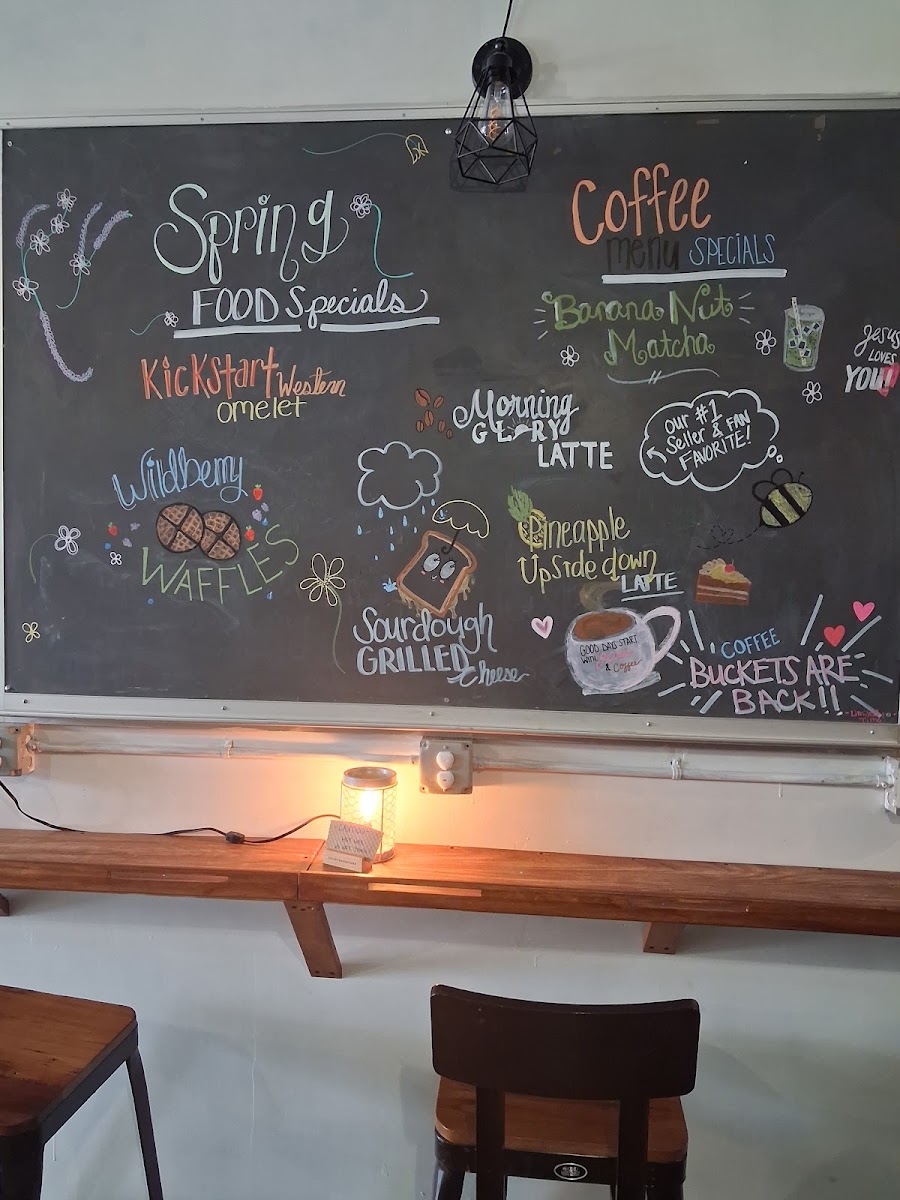 Spring
FOOD Specials
KickStart Western
omelet
Wildberry
WAFFLES
Sourdough
GRILLED cheese
Coffee
menu SPECIALS
Banana Nut
Matcha
Jesus
LOVES
YOU!!
Morning
GLORY
LATTE
OUR #1
Seller & FAN
FAVORITE!
Pineapple
Upside down
LATTE
GOOD DAYS START
WITH
& Coffee
COFFEE
BUCKETS ARE
BACK!!